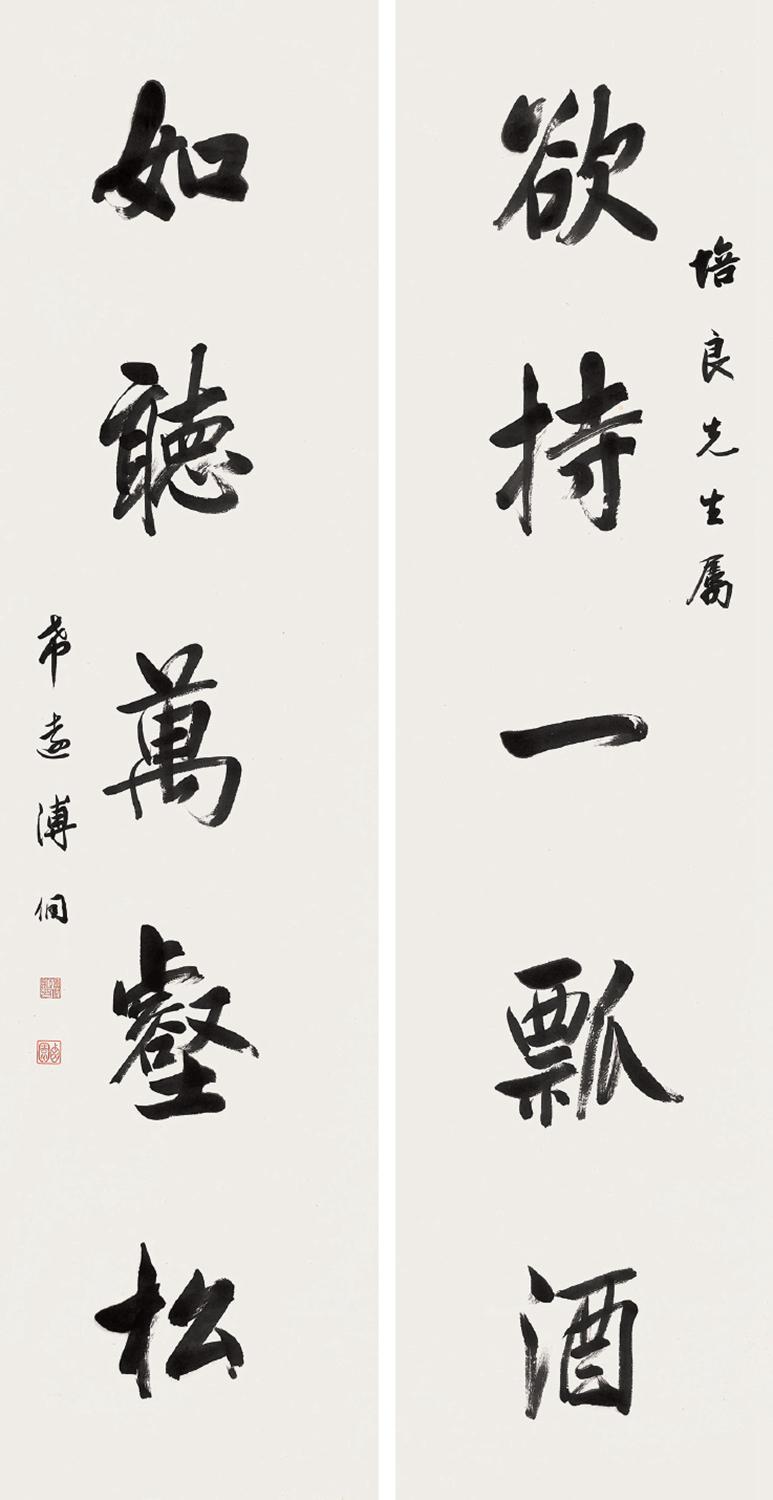 培良先生屬
欲持一瓢酒
如聽萬壑松
希遠溥侗